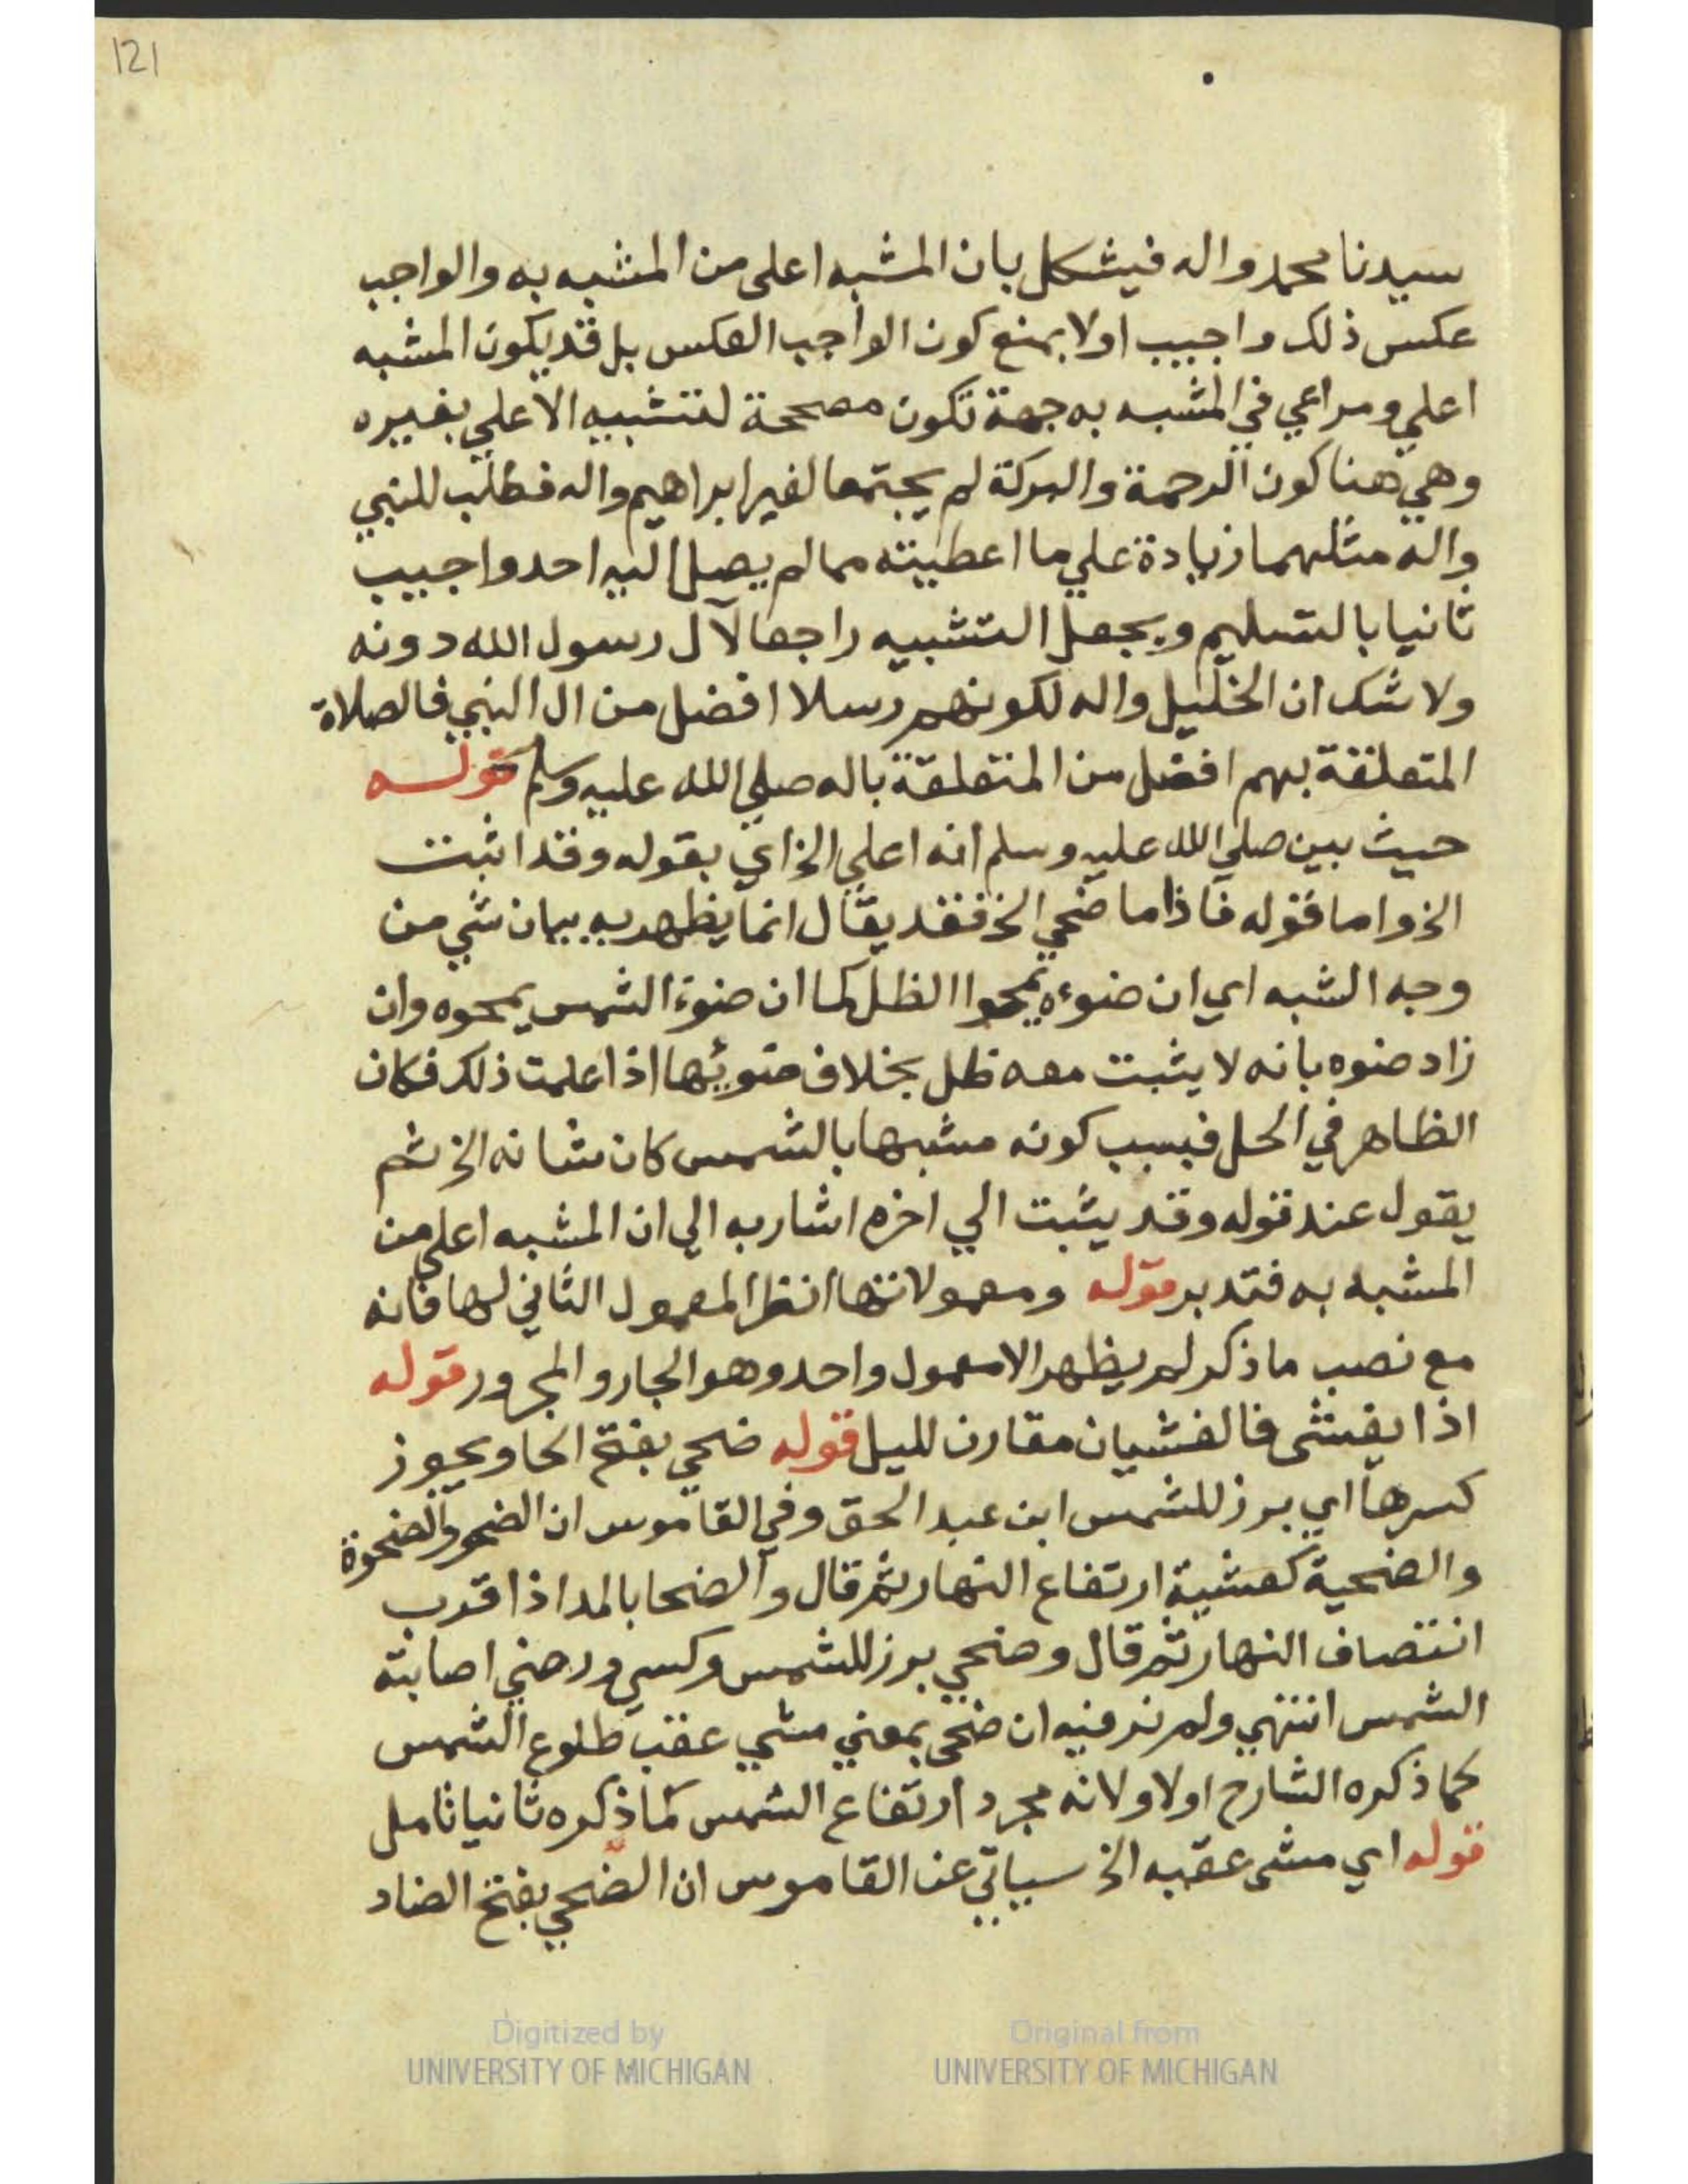 121
سيدنا محمد واله فيشكل بان المشبه اعلى من المشبه به والواجب
عكس ذلك واجيب اولا بمنع كون الواجب العكس بل قد يكون المشبه
اعلي ومراعي في المشبه به جهة تكون مصححة لتشبيه الاعلي بغيره
وهي هنا كون الرحمة والبركة لم يجتمعا لغير ابراهيم واله فطلب للنبي
واله مثلهما زيادة علي ما اعطيته مما لم يصل اليه احد واجيب
ثانيا بالتسليم ويجعل التشبيه راجعا لآل رسول الله دونه
ولا شك ان الخليل واله لكونهم رسلا افضل من ال النبي فالصلاة
المتعلقة بهم افضل من المتعلقة باله صلي الله عليه وسلم قولسه
حيث بين صلي الله عليه وسلم انه اعلي الخ اي بقوله وقد اثبت
الخ واما قوله فاذا ما ضحي الخ فقد يقال انما يظهر به بيان شي من
وجه الشبه اي ان ضوءه يمحوا الظل كما ان ضوء الشمس يمحوه وان
زاد ضوه بانه لا يثبت معه ظل بخلاف ضوئها اذا علمت ذلك فكان
الظاهر في الحل فبسبب كونه مشبها بالشمس كان شانه الخ ثم
يقول عند قوله وقد يثبت الي اخره اشار به الي ان المشبه اعلي من
المشبه به فتدبر قوله ومعمولاتها انظر المعمول الثاني لها فانه
مع نصب ما ذكر لم يظهر الا معمول واحد وهو الجار والمجرور قوله
اذا يغشى فالغشيان مقارن لليل قوله ضحي بفتح الحا ويجوز
كسرها اي برز للشمس ابن عبد الحق وفي القاموس ان الضحو والضحوة
والضحية كعشية ارتفاع النهار ثم قال والضحا بالمد اذا قرب
انتصاف النهار ثم قال وضحي برز للشمس وكسي ورضي اصابته
الشمس انتهي ولم نر فيه ان ضحى بمعني مشي عقب طلوع الشمس
كما ذكره الشارح اولا ولانه مجرد ارتفاع الشمس كما ذكره ثانيا تامل
قوله اي مشى عقبه الخ سياتي عن القاموس ان الضحي بفتح الضاد
Digitized by
UNIVERSITY OF MICHIGAN
Original from
UNIVERSITY OF MICHIGAN